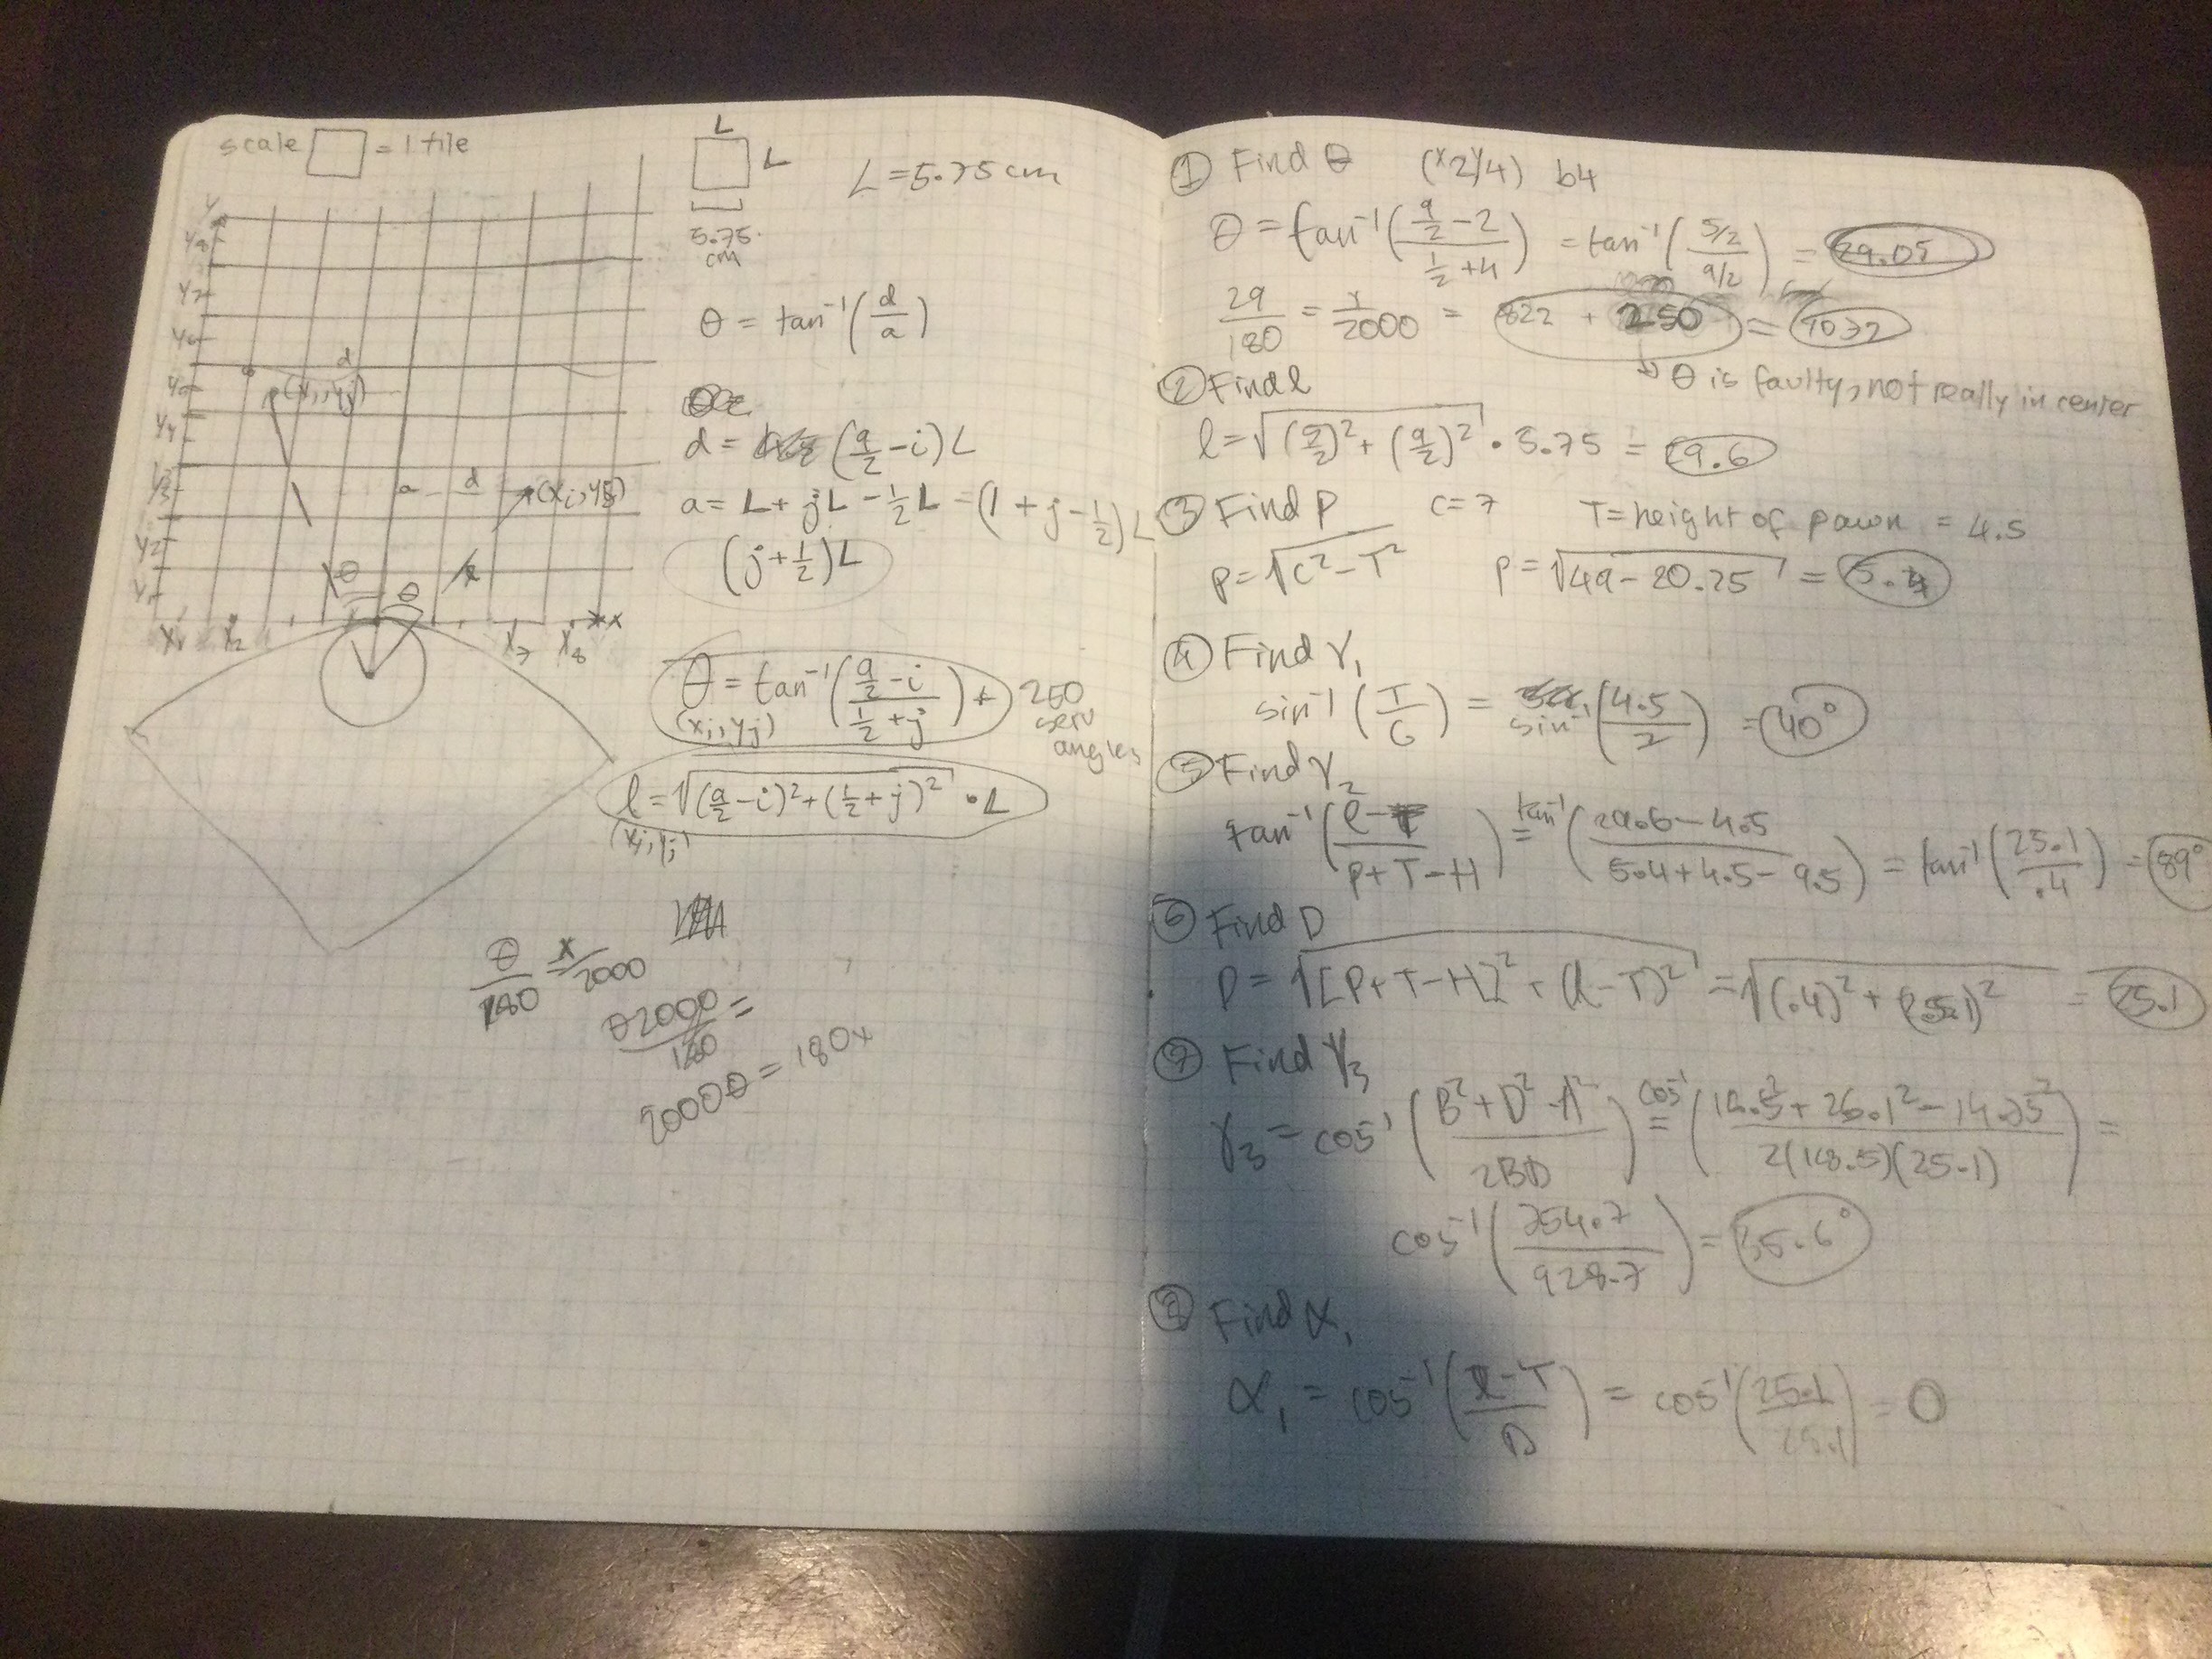 scale □ = 1 tile
L
L
5.75
cm
L = 5.75 cm
y
y8
y7
y6
d
(xi, yj)
y4
y3
a d (xi, yj)
y2
θ θ
y1
x1 x2 x7 x8 x
θ = tan⁻¹(d/a)
d = (9/2 - i)L
a = L + jL - 1/2 L = (1 + j - 1/2)L
(j + 1/2)L
θ = tan⁻¹((9/2 - i)/(1/2 + j)) + 250
(xi, yj)
serv
angles
l = √((9/2 - i)² + (1/2 + j)²) · L
(xi, yj)
θ/180 = x/2000
θ2000/180 =
2000θ = 180x
① Find θ (x2, y4) b4
θ = tan⁻¹((9/2 - 2)/(1/2 + 4)) = tan⁻¹((5/2)/(9/2)) = 29.05
29/180 = x/2000 = 822 + 250 = 1072
↳ θ is faulty, not really in center
② Find l
l = √((9/2)² + (9/2)²) · 5.75 = 29.6
③ Find P c = 7 T = height of pawn = 4.5
P = √(C² - T²) P = √(49 - 20.25) = 5.4
④ Find γ₁
sin⁻¹(T/C) = sin⁻¹(4.5/7) = 40°
⑤ Find γ₂
tan⁻¹((l - T)/(P + T - H)) = tan⁻¹((29.6 - 4.5)/(5.4 + 4.5 - 9.5)) = tan⁻¹(25.1/.4) = 89°
⑥ Find D
D = √([P + T - H]² + (l - T)²) = √((.4)² + (25.1)²) = 25.1
⑦ Find γ₃
γ₃ = cos⁻¹((B² + D² - A²)/2BD) = cos⁻¹((18.5² + 25.1² - 14.25²)/2(18.5)(25.1)) =
cos⁻¹(754.7/928.7) = 35.6°
⑧ Find α₁
α₁ = cos⁻¹((l - T)/D) = cos⁻¹(25.1/25.1) = 0